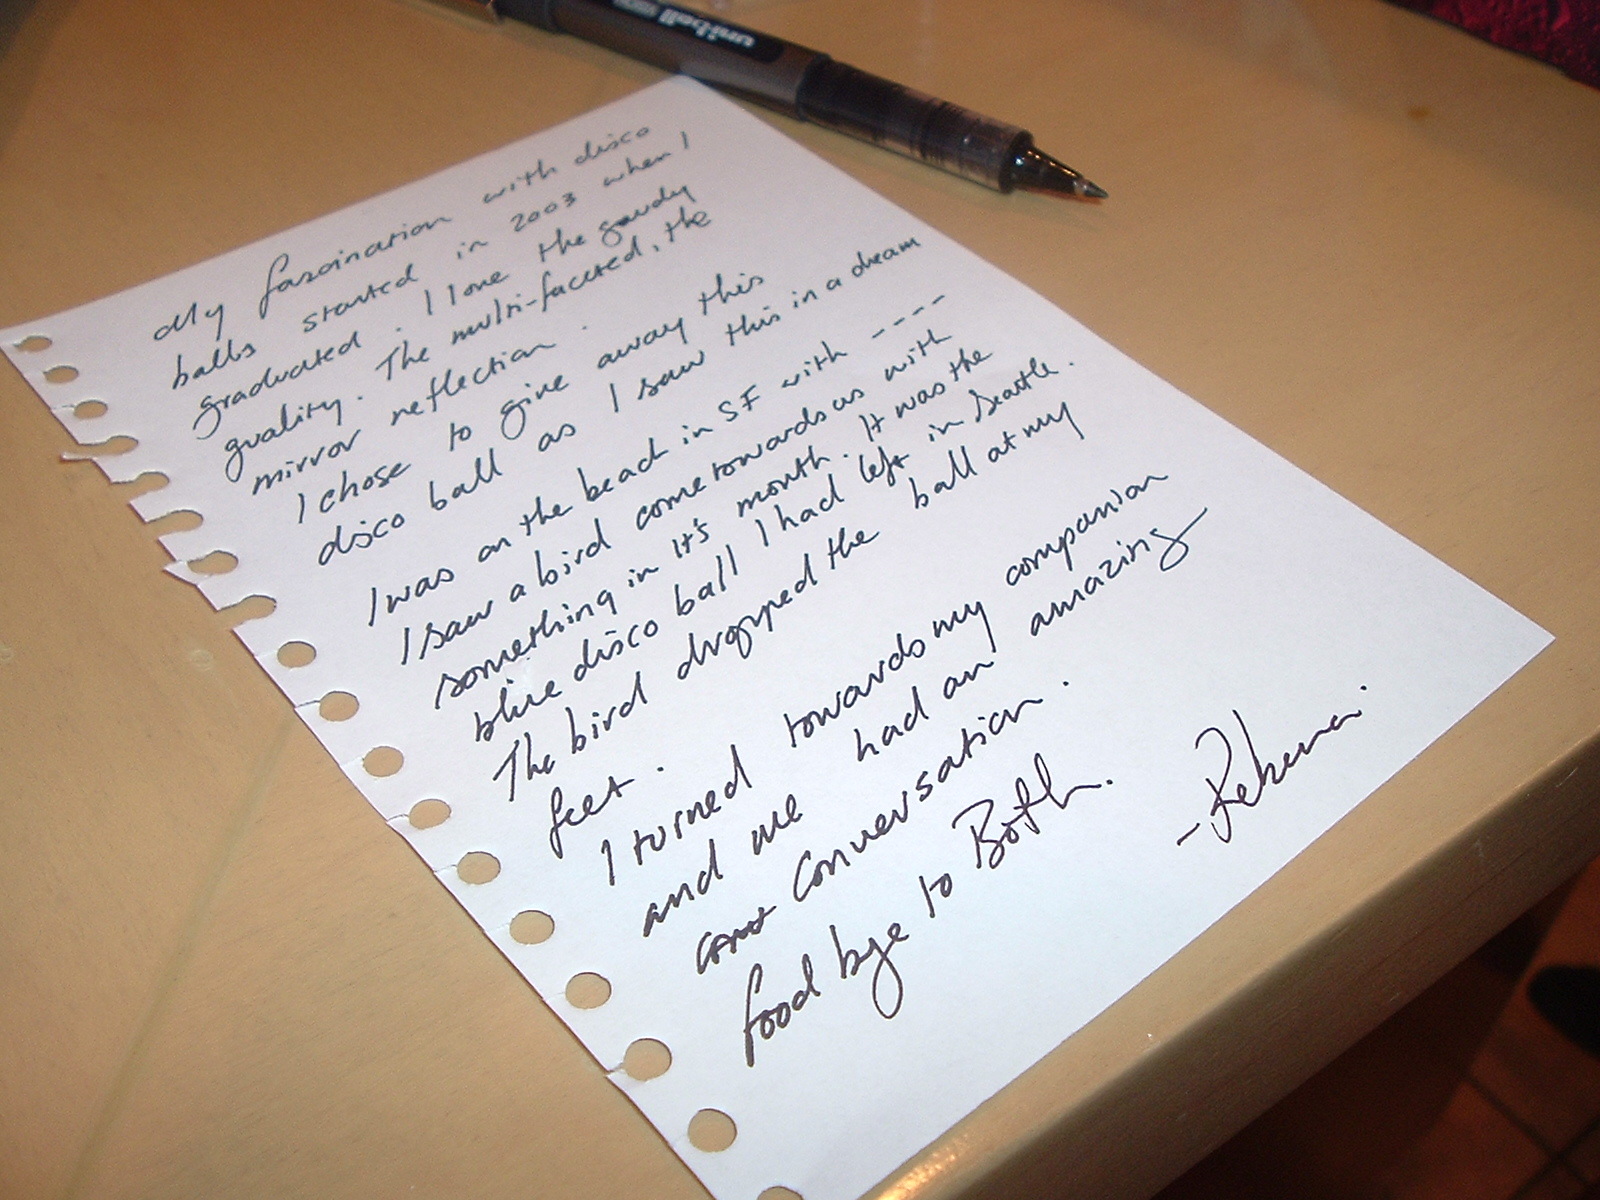 uni-ball
My fascination with disco
balls started in 2003 when I
graduated. I love the gaudy
quality. The multi-faceted, the
mirror reflection.
I chose to give away this
disco ball as I saw this in a dream
I was on the beach in SF with ----
I saw a bird come towards us with
something in it's month. It was the
blue disco ball I had left in Seattle.
The bird dropped the ball at my
feet.
I turned towards my companion
and me had an amazing
conversation.
Good bye to Both.